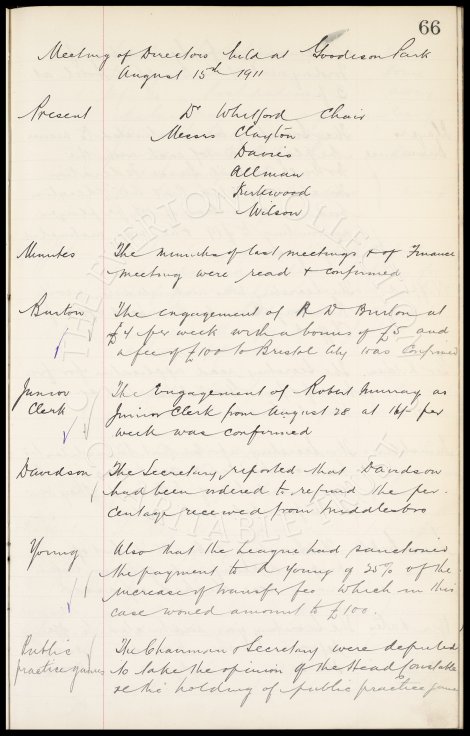 66
Meeting of Directors held at Goodison Park
August 15th 1911
Present Dr Whitford Chair
Messrs Clayton
Davies
Allman
Kirkwood
Wilson
Minutes The minutes of last meetings & of Finance
meeting were read & confirmed
Burton The engagement of R D Burton at
£4 per week with a bonus of £5 and
a fee of £100 to Bristol City was confirmed
Junior The Engagement of Robert Murray as
Clerk Junior Clerk from August 28 at 16/- per
week was confirmed
Davidson The Secretary reported that Davidson
had been ordered to refund the per
centage received from Middlesbro
Young Also that the League had sanctioned
the payment to A Young of 25% of the
increase of transfer fee which in this
case would amount to £100.
Public The Chairman & Secretary were deputed
practice games to take the opinion of the Head Constable
re the holding of public practice game
THE EVERTON COLLECTION CHARITABLE TRUST